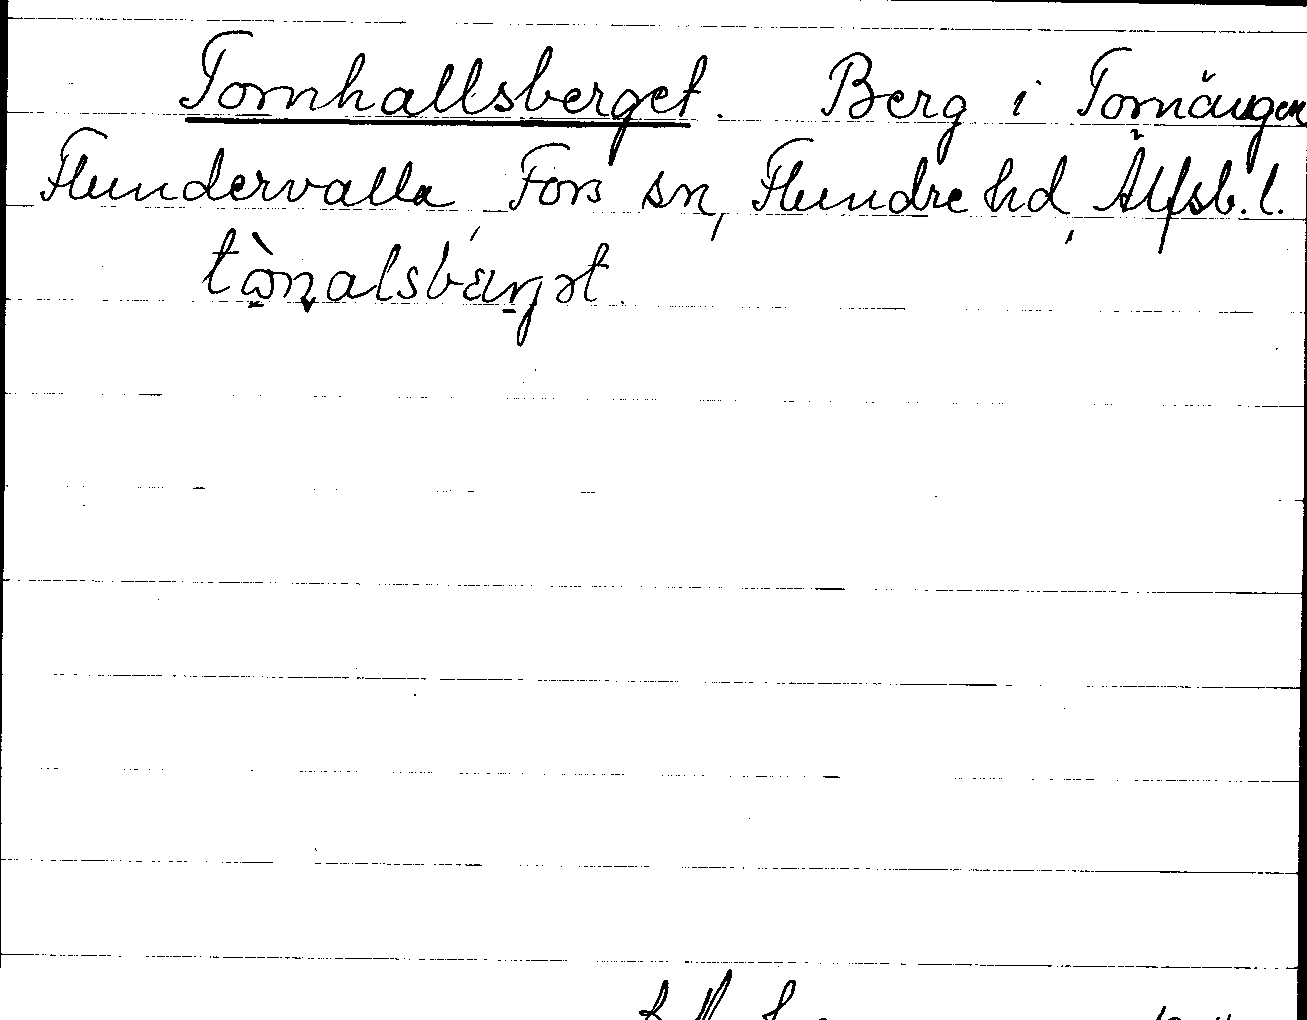 Tornhallsberget. Berg i Tornängen
Flundervalla, Fors sn, Flundre hd, Älfsb. l.